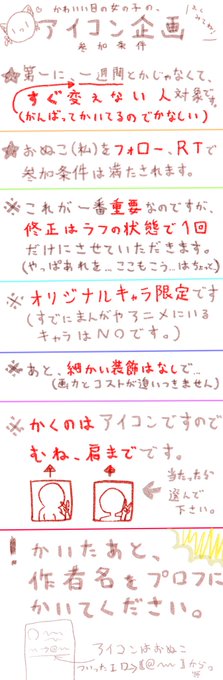 かわいい目の女の子の、
アイコン企画
参加条件
★第一に、一週間とかじゃなくて、
すぐ変えない人対象です。
(がんばってかいてるのでかなしい)
★おぬこ(私)をフォロー、RTで
参加条件は満たされます。
※これが一番重要なのですが、
修正はラフの状態で1回
だけにさせていただきます。
(やっぱあれを…ここもこう…はちょっと)
※オリジナルキャラ限定です
(すでにまんがやアニメにいる
キャラはNOです。)
※あと、細かい装飾はなしで…
(画力とコストが追いつきません)
※かくのはアイコンですので
むね、肩までです。
当たったら
選んで
下さい。
!かいたあと、
作者名をプロフに
かいてください。
アイコンはおぬこ